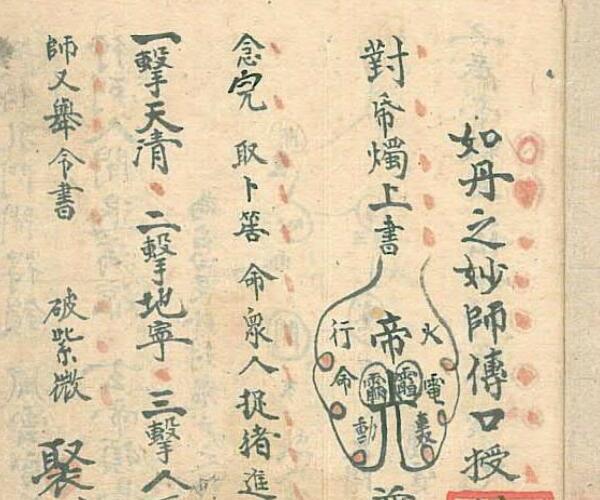 如丹之妙師傳口授
對帝燭上書
帝
火電
行命動
念完 取卜筶 命眾人捉猪進
一擊天清 二擊地寧 三擊人
師又舉令書 破紫微 聚